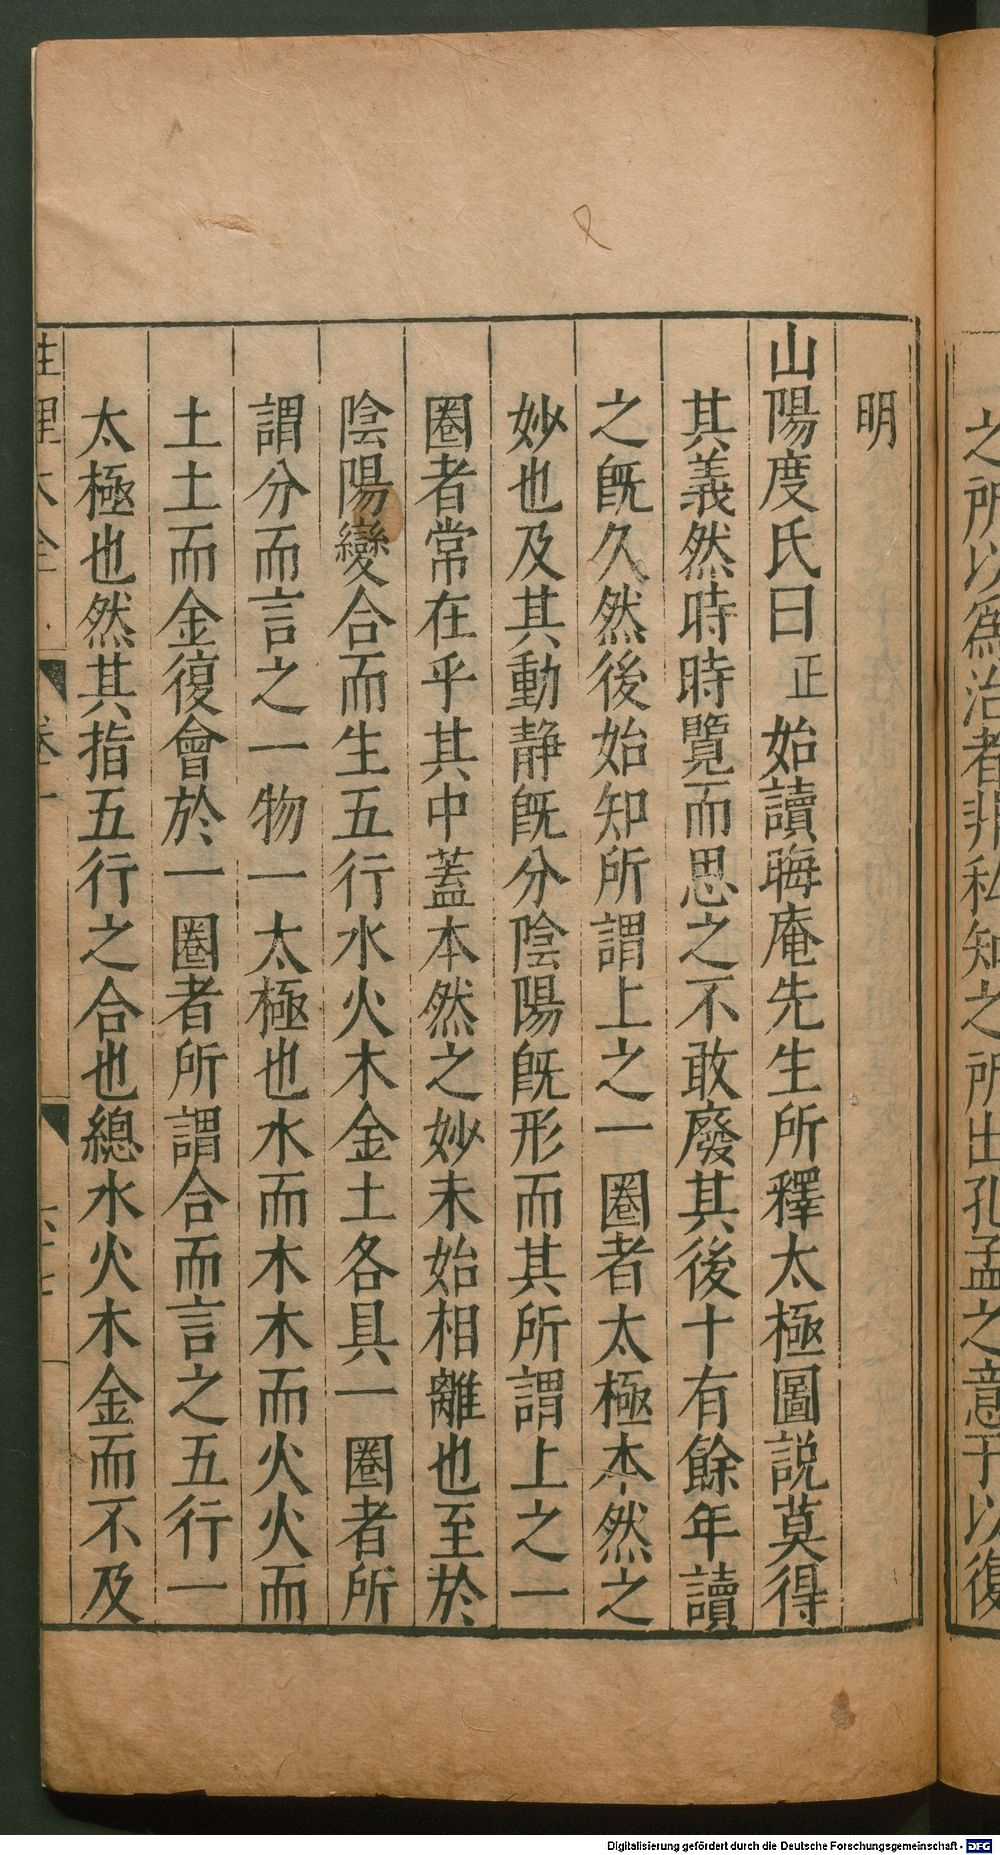 之所以爲治者非私知之所出孔孟之意于以復
明
山陽度氏曰正始讀晦庵先生所釋太極圖説莫得
其義然時時覽而思之不敢廢其後十有餘年讀
之旣久然後始知所謂上之一圈者太極本然之
妙也及其動静旣分陰陽旣形而其所謂上之一
圈者常在乎其中蓋本然之妙未始相離也至於
陰陽變合而生五行水火木金土各具一圈者所
謂分而言之一物一太極也水而木木而火火而
土土而金復會於一圈者所謂合而言之五行一
太極也然其指五行之合也總水火木金而不及
性理大全 卷一 六十七
Digitalisierung gefördert durch die Deutsche Forschungsgemeinschaft - DFG